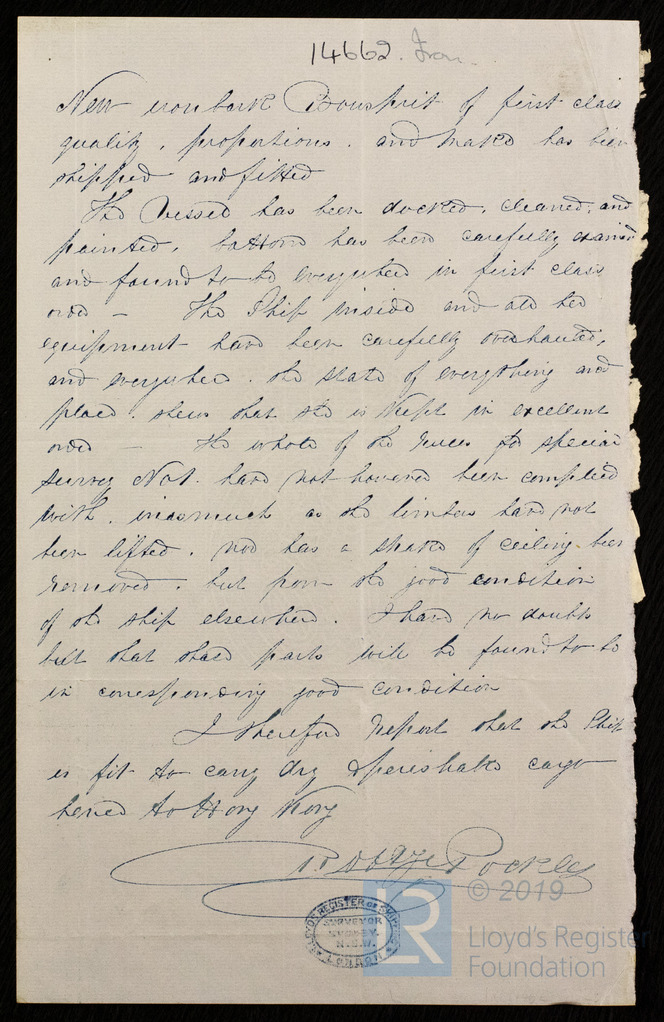 14662. Iron
New iron bark Bowsprit of first class
quality, proportions, and make has been
shipped and fitted
The Vessel has been docked, cleaned, and
painted, bottom has been carefully
and found to be everywhere in first class
order — The Ship inside and all her
equipment have been carefully overhauled,
and everywhere, the state of everything and
place, shews that she is kept in excellent
order — The whole of the rules for special
survey No 1. have not however been complied
with, inasmuch as the limbers have not
been lifted, nor has a strake of ceiling been
removed, but from the good condition
of the ship elsewhere, I have no doubt
but that these parts will be found to be
in corresponding good condition
I therefore Report that the Ship
is fit to carry dry & perishable cargo
hence to Hong Kong
Pockley
LLOYD'S REGISTER OF SHIPPING
SURVEYOR
SYDNEY.
N.S.W.
LONDON
LR
© 2019
Lloyd's Register
Foundation